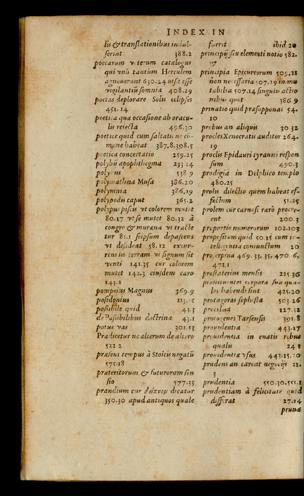 INDEX IN
lis & translationibus indul-
serint 388.2
poetarum veterum catalogus
qui vnũ tantum Herculem
agnouerunt 630.24
vigilantiũ somnia 408.29
poetas deplorare Solis eclipses
451.14
poetica qua occasione ab oracu-
lis reiecta 496.30
poetice quid cum saltatione
habeat 387.8.398.5
poetica concertatio 259.25
polybii apophthegma 233.14
538.9
polymathina Musa 386.20
polymnia 386.19
polypodii caput 365.2
polypus piscis vt colorem mutet
80.17 vt se mutet 80.32 à
congro & muræna vt tracte
tur 81.1 seipsum depascens
vt desideat 58.12 exur-
rens in terram vt signum sit
venti 141.35 cur colorem
mutet 142.3 eiusdem caro
143.1
pompeius Magnus 269.9
posidonius
possibile quid 42.3
de Possibilibus doctrina 43.1
potus vas 301.53
Prædicetur ne alterum de altero
522.2
præsens tempus à Stoicis negatũ
575.18
præteritorum & futurorum sen
sio 577.35
prandium cur dictum
350.30 apud antiquos quale
fuerit ibid 20
principiũ seu elementi notio 582.
17
principia Epicureorum 505.21
non necessaria 507.19 im mu
tabilia 507.24 singulis actio
nibus quot 386.9
priuatio quid præsupponat 54.
10
probus an aliquis 30.32
procles Xenocratis auditor 264.
19
proclis Epidauri tyranni respon
sum 490.3
prodigia in Delphico templo
480.25
prolis dilectio quem habeat ef-
fectum 51.25
prolem cur carnisi rarò procre-
ent 200.3
proportio numerorum 102.103
propositum quid 50.15 cum in-
telligentia coniunctum 20
proserpina 469.33.35.470.6.
472.1
præstatione mensis 225.36
lis habendi sint 421.20
protagoras sophista 503.26
proxima 127.12
protogenes Tarsensis 301.8
prouidentia 443.17
prouidentia in enatis rebus
qualis 24.8
prouidentia vsus 443.15.10
prudens an careat negociis 21.
3
prudentia 550.30.551.1
prudentiam à felicitate quid
differat 27.14
pruna